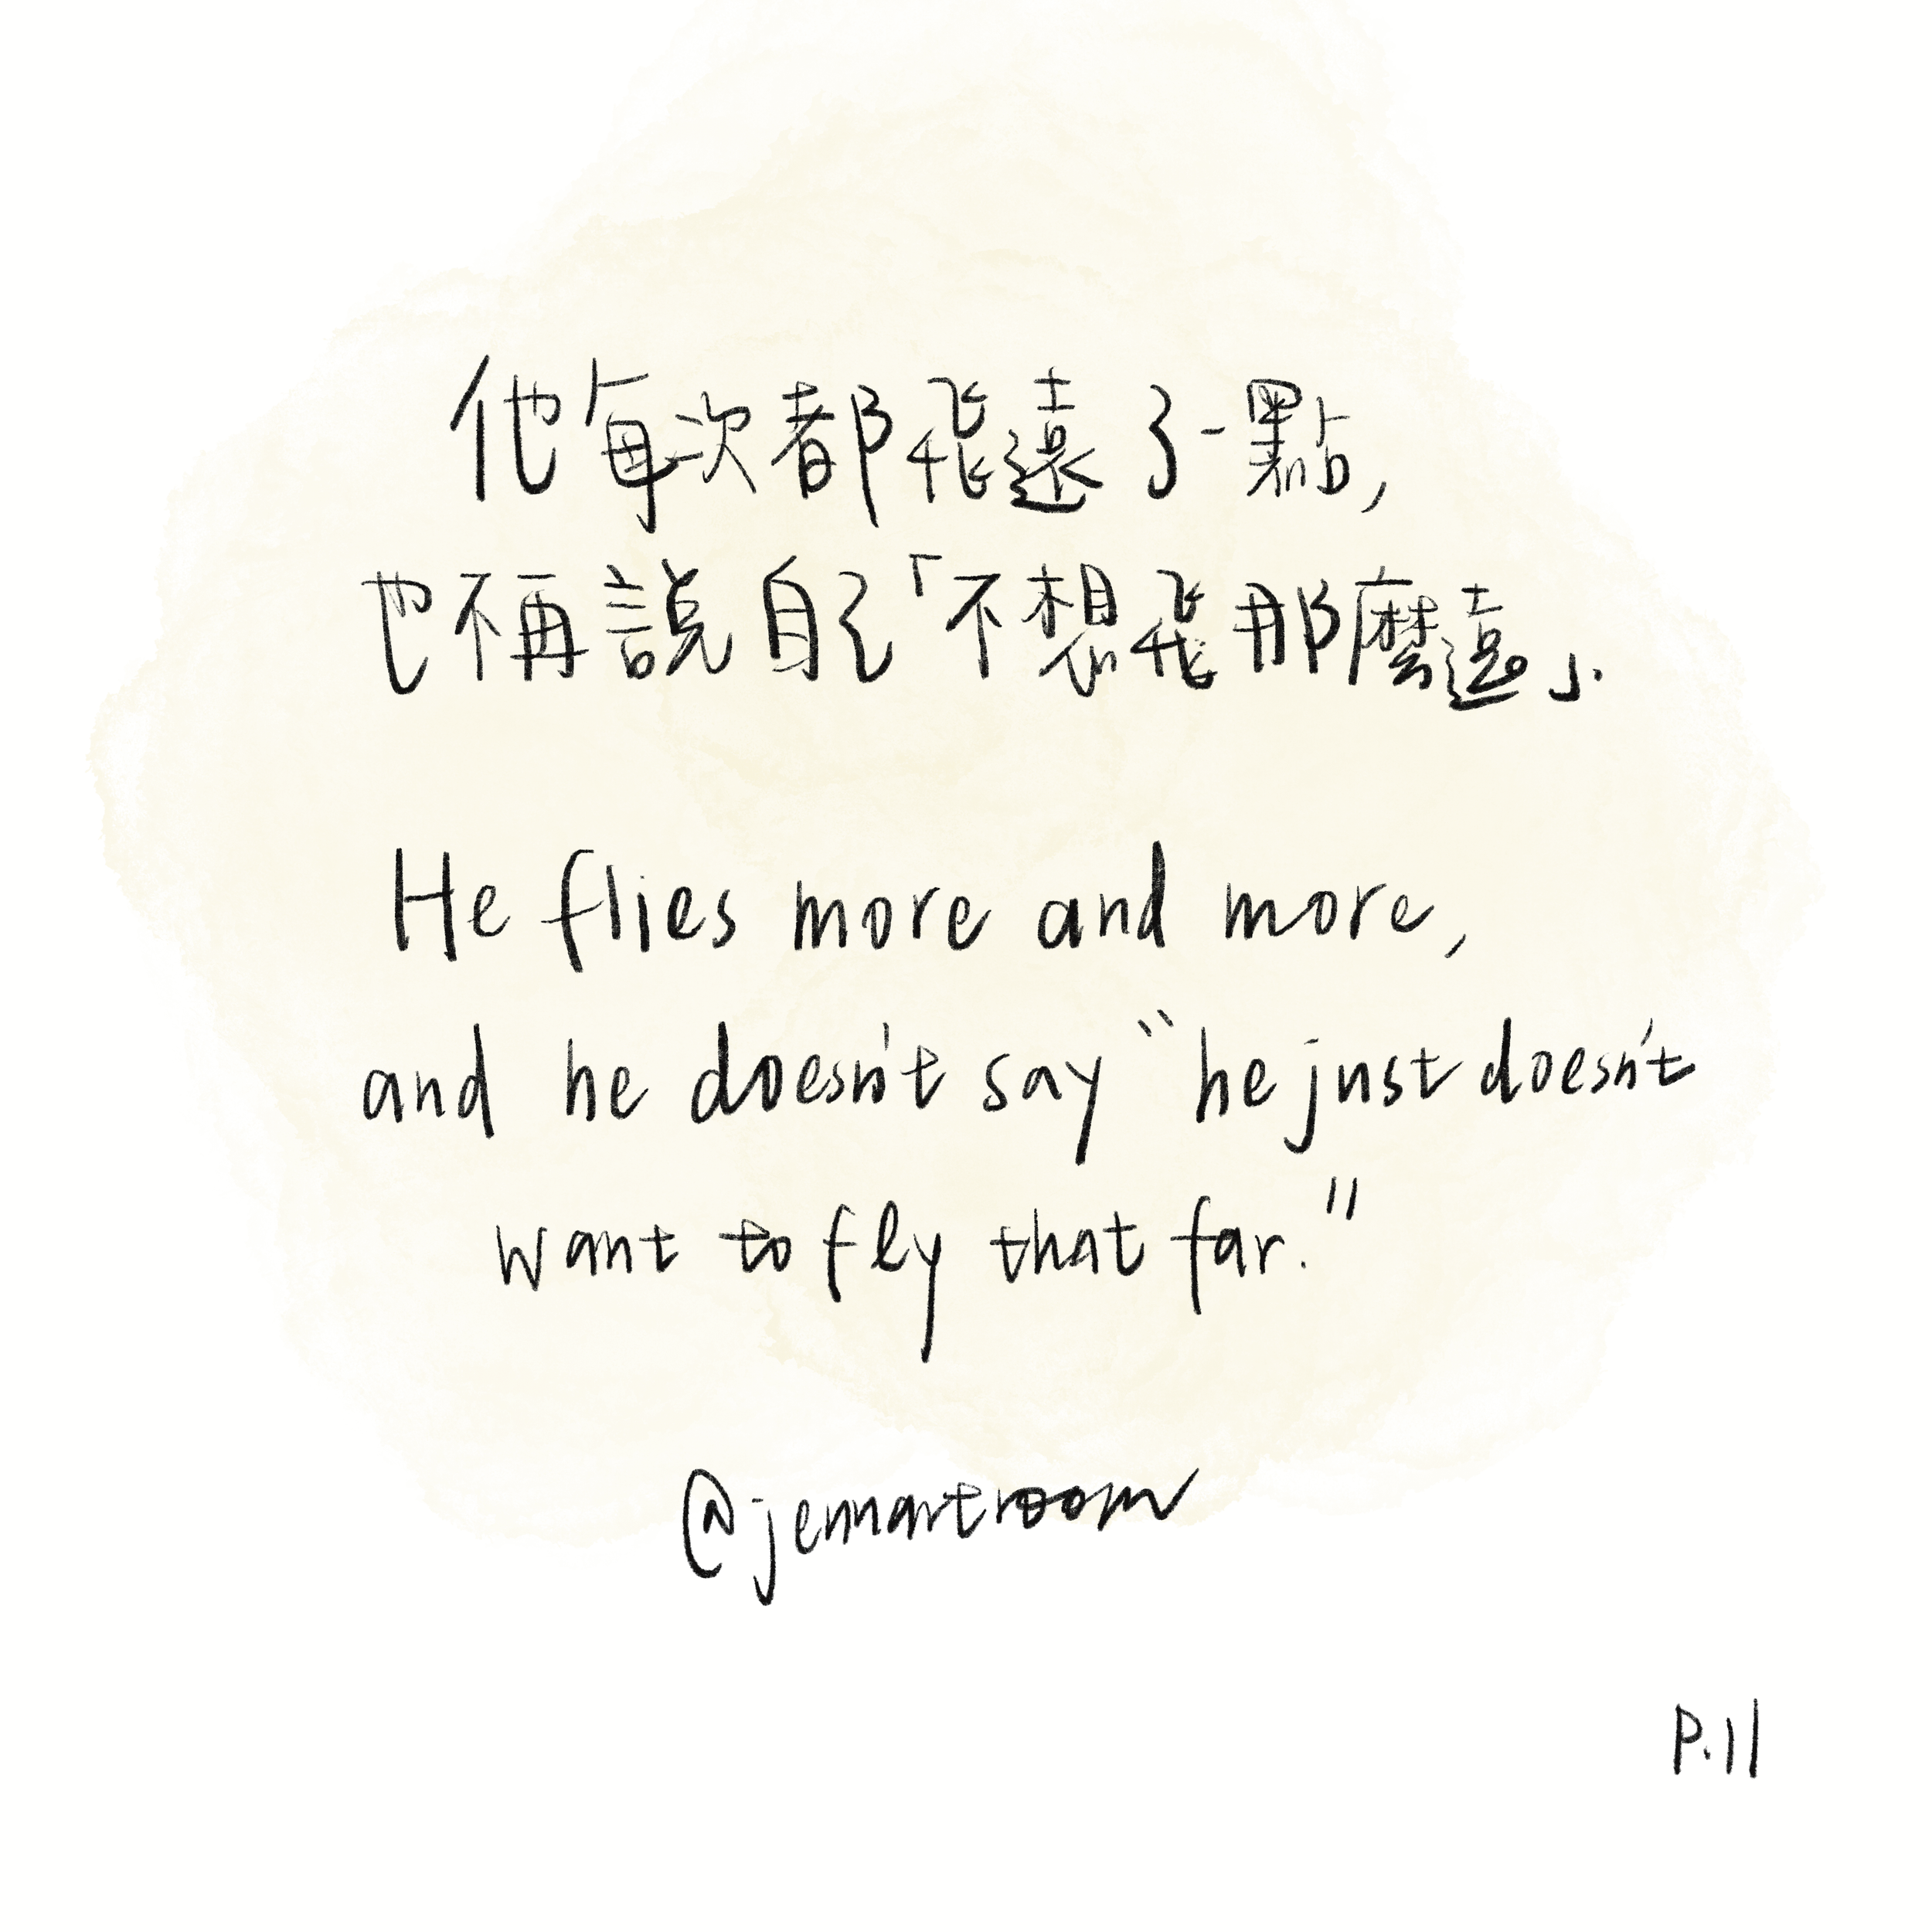 他每次都飛遠了一點,
也不再說自己「不想飛那麼遠」.
He flies more and more,
and he doesn't say "he just doesn't
want to fly that far."
@jennartroom
P.11